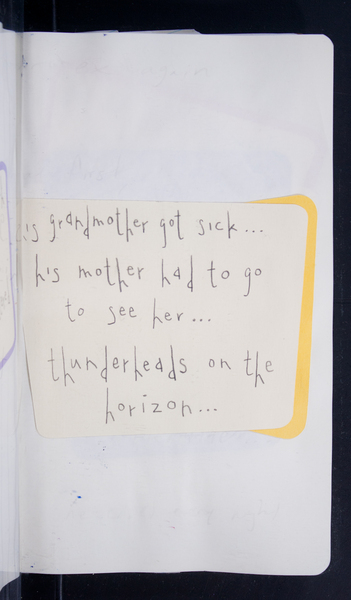 his grandmother got sick...
his mother had to go
to see her...
thunderheads on the
horizon...